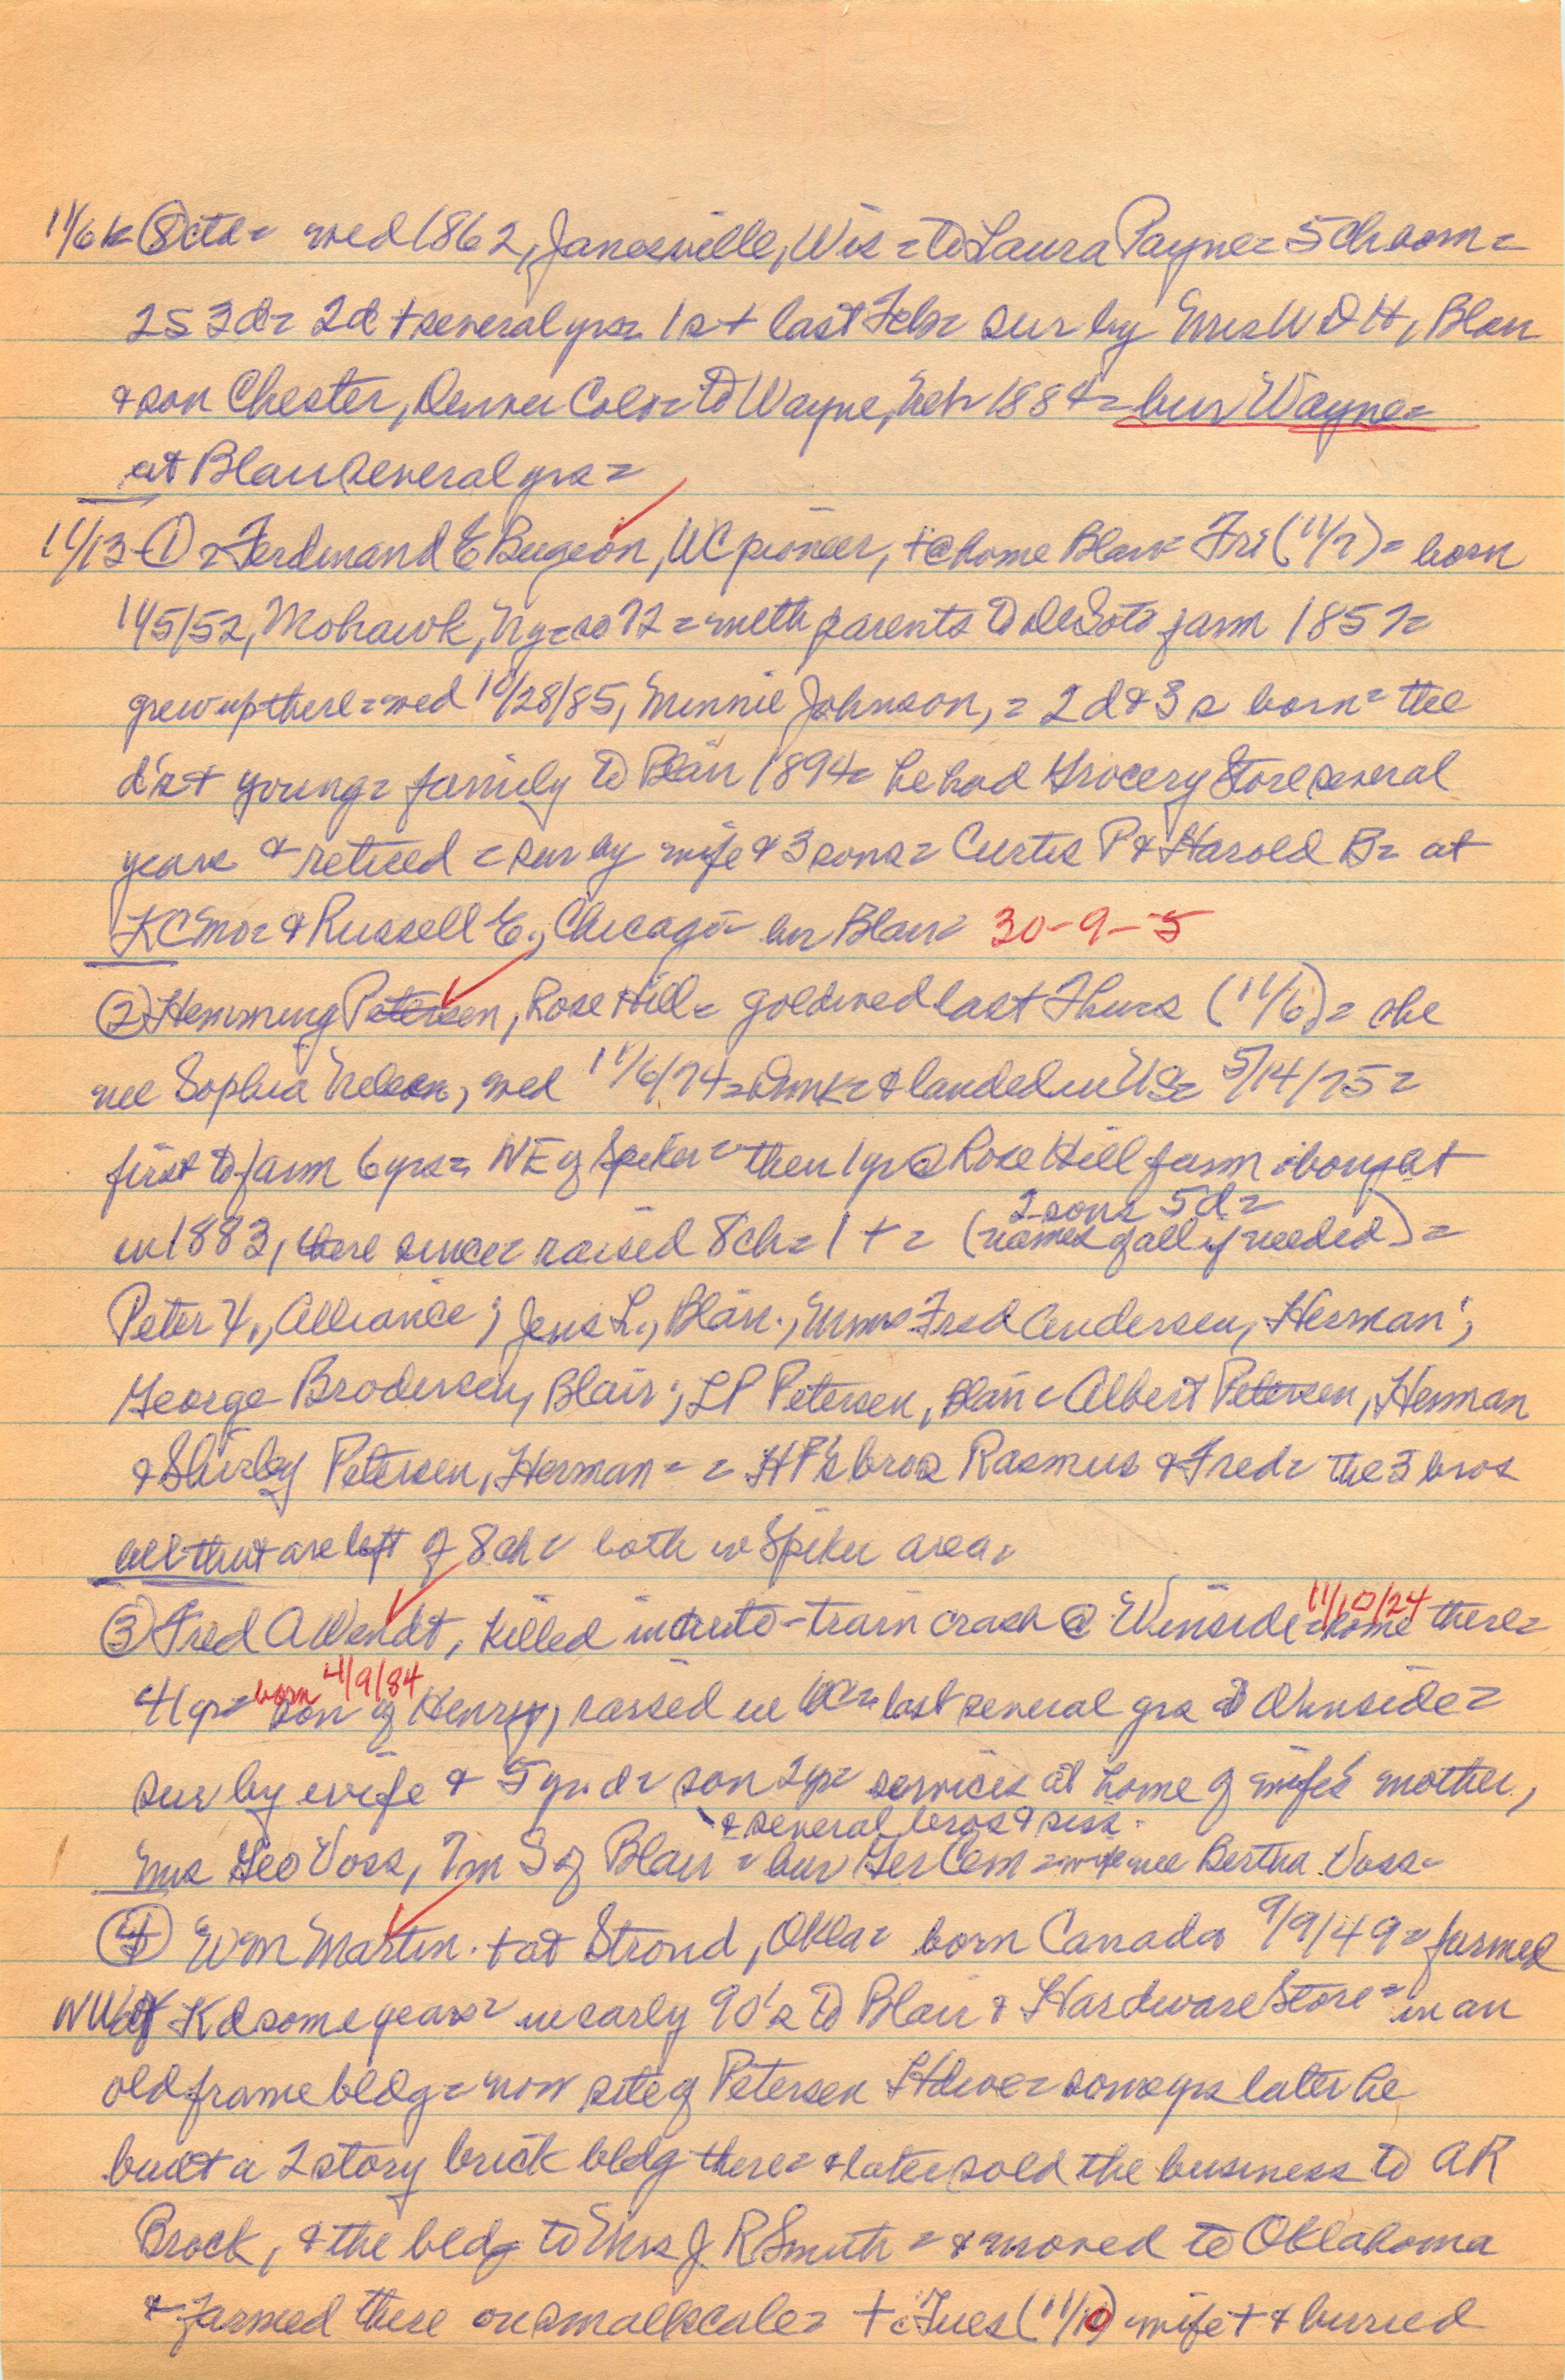 11/6 (8) ctd = wed 1862, Janesville, Wis = to Laura Payne = 5 ch born =
2s 3d = 2d + several yrs = 1s + last Feb = sur by Mrs W D H, Blair
& son Chester, Denver Colo = to Wayne, Neb 1884 = bur Wayne =
at Blair several yrs =
11/13 (1) = Ferdinand E Bugeon, WC pioneer, + @ home Blair Fri (11/7) = born
1/15/52, Mohawk, Ny = so 72 = with parents to DeSoto farm 1857 =
grew up there = wed 10/28/85, Minnie Johnson, = 2d & 3s born = the
d's + young = family to Blair 1894 = he had Grocery Store several
years & retired = sur by wife & 3 sons = Curtis P & Harold B = at
KC Mo = & Russell E., Chicago = bur Blair = 30-9-5
(2) Hemming Petersen, Rose Hill = gold wed last Thurs (11/6) = she
nee Sophia Nelson, wed 11/6/74 = Dnmk = & landed in US = 5/14/75 =
first to farm 6 yrs = NE of Spiker = then 1 yr @ Rose Hill farm bought
2 sons 5 d =
in 1883, there since = raised 8 ch = 1 + = (names of all if needed) =
Peter H., Alliance; Jens L., Blair; Mmes Fred Andersen, Herman;
George Brodersen, Blair; LP Petersen, Blair = Albert Petersen, Herman
& Shirley Petersen, Herman = = HP's bros Rasmus & Fred = the 3 bros
all that are left of 8 ch = both in Spiker area =
(3) Fred A Wendt, killed in auto-train crash @ Winside = home there = 11/10/24
41 yr = born 4/9/84 son of Henry, raised in WC = last several yrs @ Winside =
sur by wife & 5 yr. d = son 2 yr = services at home of wife's mother,
& several bros & siss.
Mrs Geo Voss, 7m S of Blair = bur Ger Cem = wife nee Bertha Voss =
(4) Wm Martin. + at Stroud, Okla = born Canada 9/9/49 = farmed
NW of Kd some years = in early 90's to Blair & Hardware Store = in an
old frame bldg = now site of Petersen Hdwe = some yrs later he
built a 2 story brick bldg there = & later sold the business to AR
Brock, & the bldg to Mrs J. R Smith = & moved to Oklahoma
& farmed there on small scale = + Tues (11/10) wife + & buried